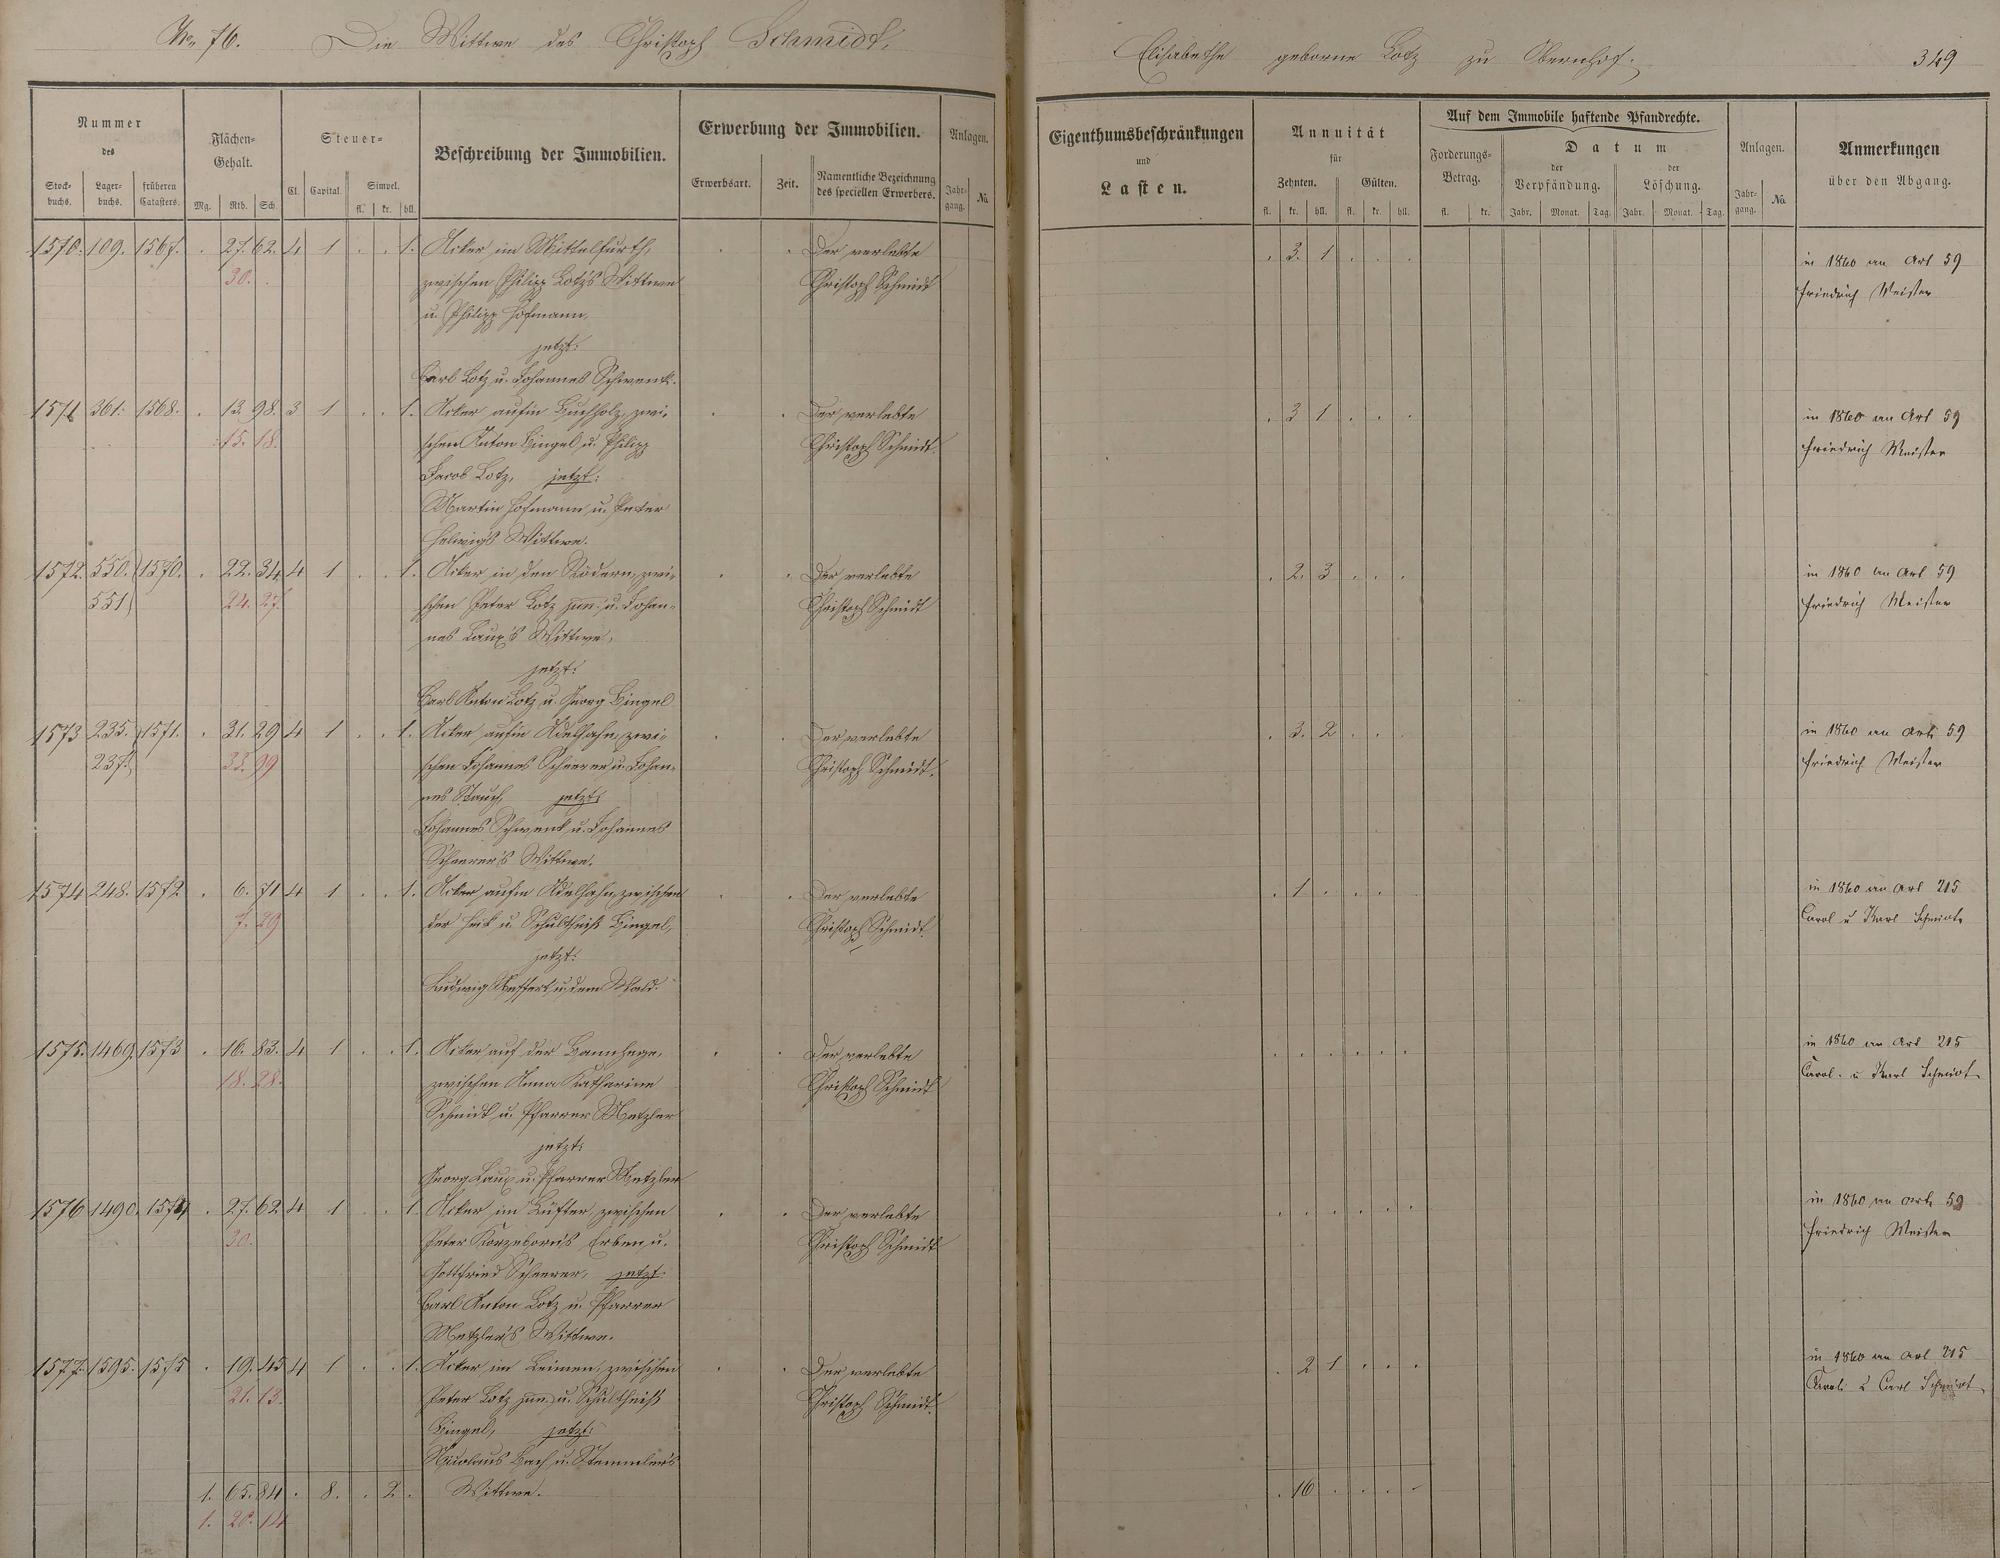 No. 76. Die Wittwe des Christoph Schmidt,
Elisabethe geborne Lotz zu Obernhof.
349
Nummer
des
Stock-
buchs.
Lager-
buchs.
früheren
Catasters.
Flächen-
Gehalt.
Mg. Rth. Sch.
Steuer-
Cl. Capital. Simpel.
fl. kr. hll.
Beschreibung der Immobilien.
Erwerbung der Immobilien.
Erwerbsart. Zeit. Namentliche Bezeichnung
des speciellen Erwerbers.
Anlagen.
Jahr-
gang. No.
Eigenthumsbeschränkungen
und
Lasten.
Annuität
für
Zehnten. Gülten.
fl. kr. hll. fl. kr. hll.
Auf dem Immobile haftende Pfandrechte.
Forderungs-
Betrag.
fl. kr.
Datum
der der
Verpfändung. Löschung.
Jahr. Monat. Tag. Jahr. Monat. Tag.
Anlagen.
Jahr-
gang. No.
Anmerkungen
über den Abgang.
1570. 109. 1567. . 27. 62. 4 1 . . 1. Acker im Mittelfurth, . . Der verlebte . 3. 1 . . . in 1860 an Art 59
30. . zwischen Philipp Lotz's Wittwe Christoph Schmidt Friedrich Meister
u. Philipp Hofmann,
jetzt:
Carl Lotz u. Johannes Schwenk.
1571 361. 1568. . 13. 98. 3 1 . . 1. Acker auf'm Buchholz, zwi- . . Der verlebte . 3 1 . . . in 1860 an Art 59
15. 18. schen Anton Bingel u. Philipp Christoph Schmidt. Friedrich Meister
Jacob Lotz, jetzt:
Martin Hofmann u. Peter
Helwig's Wittwe.
1572. 550. 1570. . 22. 34 4 1 . . 1. Acker in den Rödern, zwi- . . Der verlebte . 2. 3 . . . in 1860 an Art 59
551 24. 27. schen Peter Lotz jun. u. Johan- Christoph Schmidt Friedrich Meister
nes Laux's Wittwe,
jetzt:
Carl Anton Lotz u. Georg Bingel
1573 235. 1571. . 31. 29 4 1 . . 1. Acker auf'm Adelhahn, zwi- . . Der verlebte . 3. 2 . . . in 1860 an Art 59
237. 33. 99 schen Johannes Scheerer u. Johan- Christoph Schmidt. Friedrich Meister
nes Stauch, jetzt:
Johannes Schwenk u. Johannes
Scheerer's Wittwe.
1574 248. 1572 . 6. 71 4 1 . . 1. Acker auf'm Adelhahn, zwischen . . Der verlebte . 1 . . . . in 1860 an Art 215
7. 29 der Heck u. Schultheiß Bingel, Christoph Schmidt. Carol u Karl Schmidt
jetzt:
Ludwig Seffert u. dem Wald.
1575. 1469. 1573 . 16. 83. 4 1 . . 1. Acker auf der Bannhege, . . Der verlebte . . . . . . in 1860 an Art 215
18. 28. zwischen Anna Katharine Christoph Schmidt Carol. u Karl Schmidt
Schmidt u. Pfarrer Metzler
jetzt:
Georg Laux u. Pfarrer Metzler
1576 1490. 1574 . 27. 62 4 1 . . 1. Acker im Lüfter, zwischen . . Der verlebte . . . . . . in 1860 an Art 59
30. Peter Korzeborn's Erben u. Christoph Schmidt Friedrich Meister
Gottfried Scheerer, jetzt:
Carl Anton Lotz u. Pfarrer
Metzler's Wittwe.
1577. 1595. 1575 . 19. 45 4 1 . . 1. Acker im Leimen, zwischen . . Der verlebte . 2 1 . . . in 1860 an Art 215
21. 13. Peter Lotz jun. u. Schultheiß Christoph Schmidt. Carl Schmidt
Bingel, jetzt:
Nicolaus Bach u. Stemmler's
1. 65. 84 . 8. . 2. Wittwe. . 16 . . . .
1. 20. 14